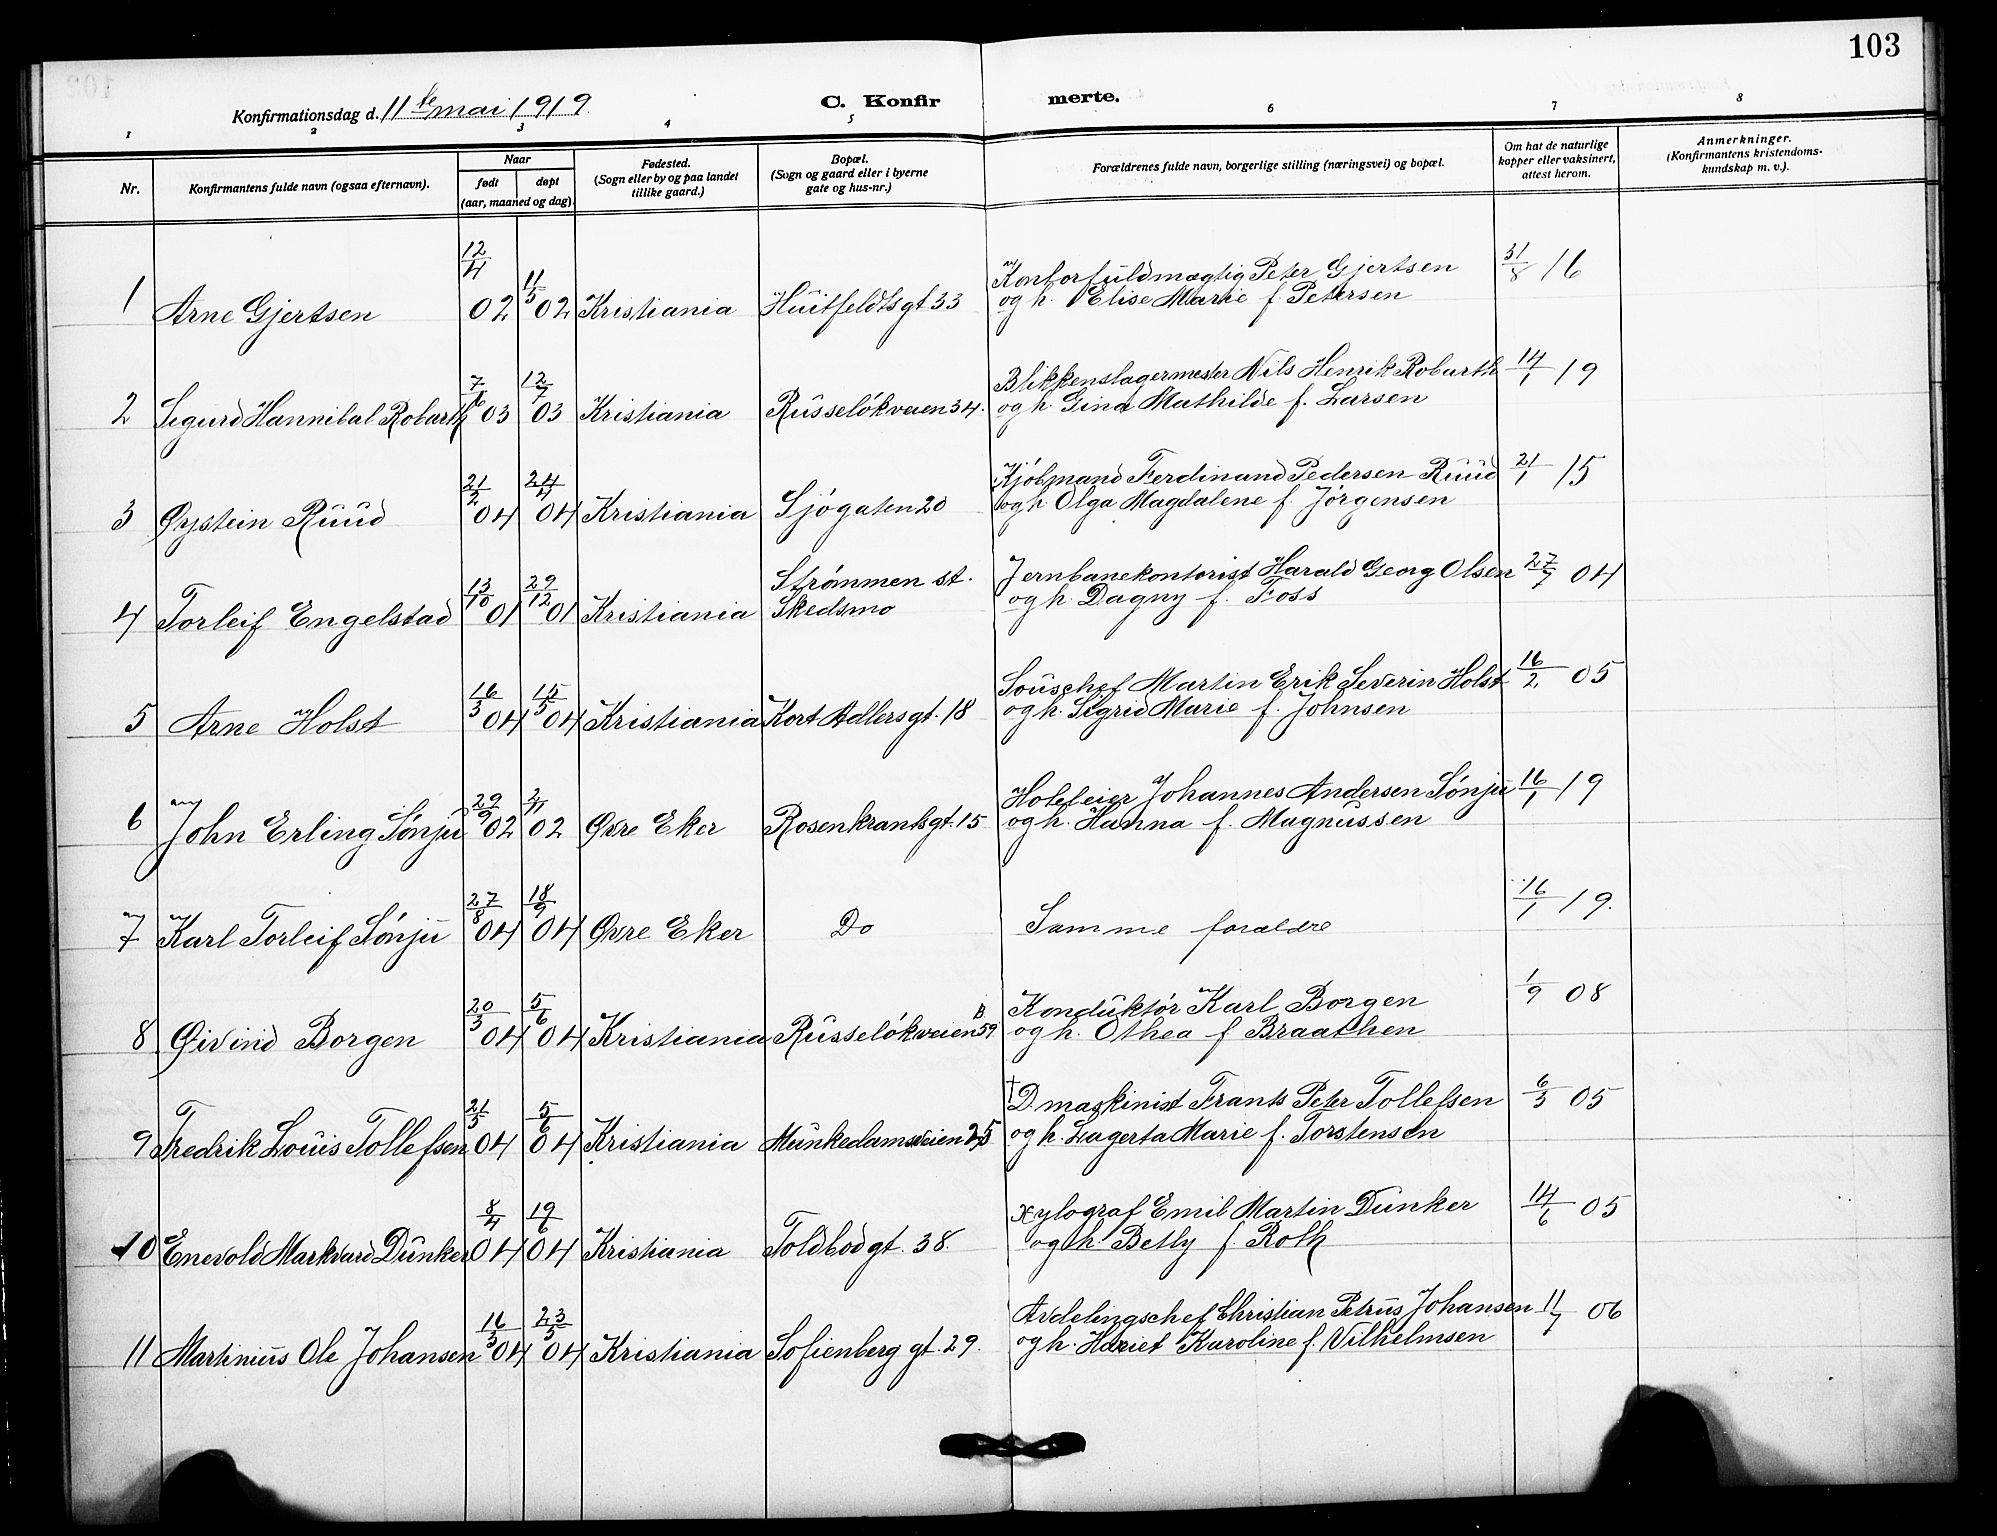 103
Konfirmationsdag d. 11te mai 1919.
C. Konfirmerte.
1 2 3 4 5 6 7 8
Nr.
Konfirmantens fulde navn (ogsaa efternavn).
Naar
født døpt
(aar, maaned og dag).
Fødested.
(Sogn eller by og paa landet
tillike gaard.)
Bopæl.
(Sogn og gaard eller i byerne
gate og hus-nr.)
Forældrenes fulde navn, borgerlige stilling (næringsvei) og bopæl.
Om hat de naturlige
kopper eller vaksinert,
attest herom.
Anmerkninger.
(Konfirmantens kristendoms-
kundskap m. v.).
12/4 11/5 Kontorfuldmægtig Peter Gjertsen 31/8 16
1 Arne Gjertsen 02 02 Kristiania Huitfeldtsgt. 33 og h. Elise Marie f. Petersen
7/6 12/7 Blikkenslagermester Nils Henrik Robarth 14/1 19
2 Sigurd Hannibal Robarth 03 03 Kristiania Russeløkveien 34. og h. Gina Mathilde f. Larsen
21/2 24/4 Kjøbmand Ferdinand Pedersen Ruud 21/1 15
3 Øystein Ruud 04 04 Kristiania Sjøgaten 20 og h. Olga Magdalene f. Jørgensen
13/10 29/12 Strømmen st. Jernbanekontorist Harald Georg Olsen 27/7 04
4 Torleif Engelstad 01 01 Kristiania Skedsmo og h. Dagny f. Foss
16/3 15/5 Souschef Martin Erik Severin Holst 16/2 05
5 Arne Holst 04 04 Kristiania Kort Adlersgt. 18 og h. Sigrid Marie f. Johnsen
29/9 2/11 Hoteleier Johannes Andersen Sønju 16/1 19
6 John Erling Sønju 02 02 Øvre Eker Rosenkrantsgt. 15 og h. Hanna f. Magnussen
27/8 18/9 16/1 19.
7 Karl Torleif Sønju 04 04 Øvre Eker Do Samme forældre
20/3 5/6 Konduktør Karl Borgen 1/9 08
8 Øivind Borgen 04 04 Kristiania Russeløkveien 59 B og h. Othea f Braathen
21/5 5/6 † D maskinist Frants Peter Tollefsen 6/3 05
9 Fredrik Louis Tollefsen 04 04 Kristiania Munkedamsveien 25 og h. Lagerta Marie f. Torstensen
8/4 19/6 Xylograf Emil Martin Dunker 14/6 05
10 Enevold Markvard Dunker 04 04 Kristiania Toldbodgt. 38. og h. Betly f. Roth
16/3 23/5 Avdelingschef Christian Petrus Johansen 11/7 06
11 Martinius Ole Johansen 04 04 Kristiania Sofienberg gt. 29. og h. Hariet Karoline f. Vilhelmsen